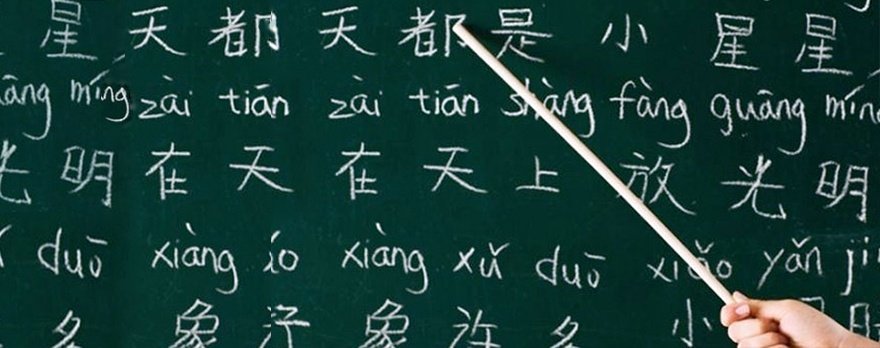 星天都天都是小星星
āng míng zài tiān zài tiān shàng fàng guāng mín
光明在天在天上放光明
duō xiàng ǎo xiàng xǔ duō xiǎo yǎn
多象许象许多小